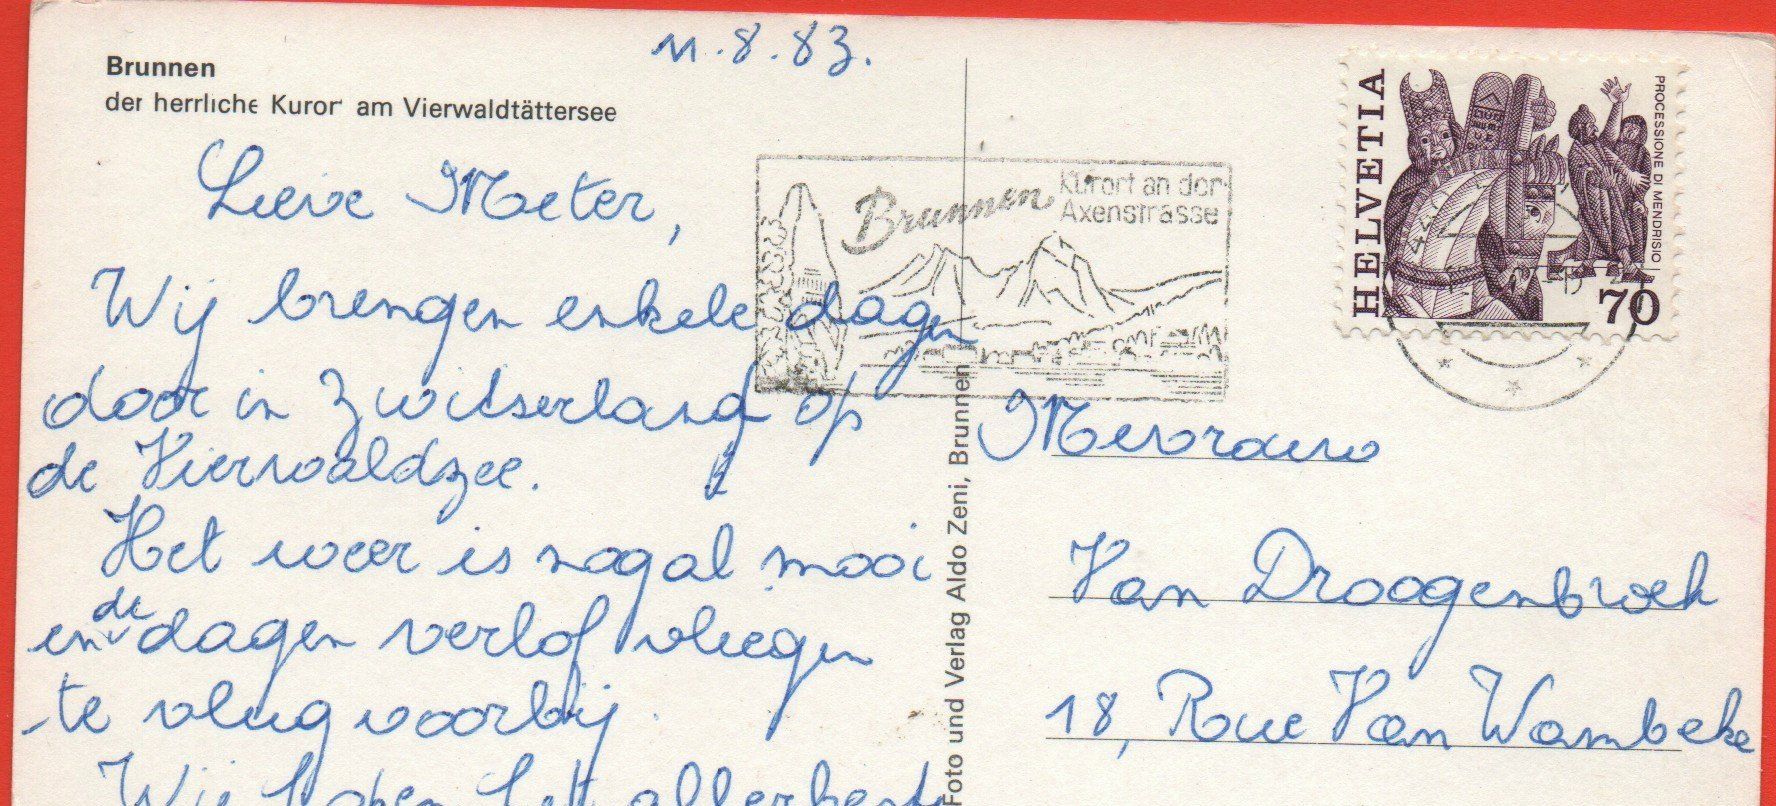 Brunnen
der herrliche Kuror am Vierwaldtättersee
11.8.83.
Lieve Meter,
Wij brengen enkele dagen
door in Zwitserland op
de Vierwaldzee.
Het weer is nogal mooi
en de dagen verlof vliegen
te vlug voorbij.
Wij hopen het allerbeste
Foto und Verlag Aldo Zeni, Brunnen
Brunnen
Kurort an der
Axenstrasse
HELVETIA
PROCESSIONE DI MENDRISIO
70
Mevrouw
Van Droogenbroek
18, Rue Van Wambeke